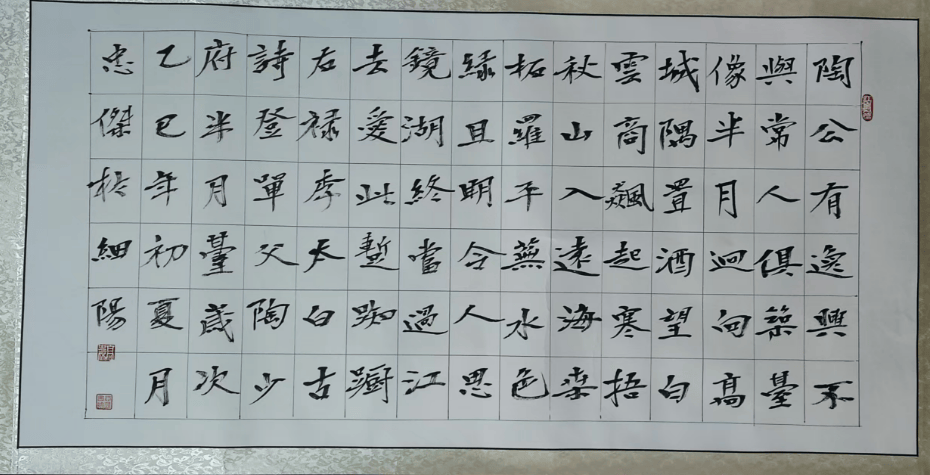 陶公有逸興不
與常人俱築臺
像半月迥向高
城隅置酒望白
雲商飆起寒梧
秋山入遠海桑
柘羅平蕪水色
綠且明令人思
鏡湖終當過江
去愛此暫踟躕
右祿李太白古
詩登單父陶少
府半月臺歲次
乙巳年初夏月
忠傑於細陽